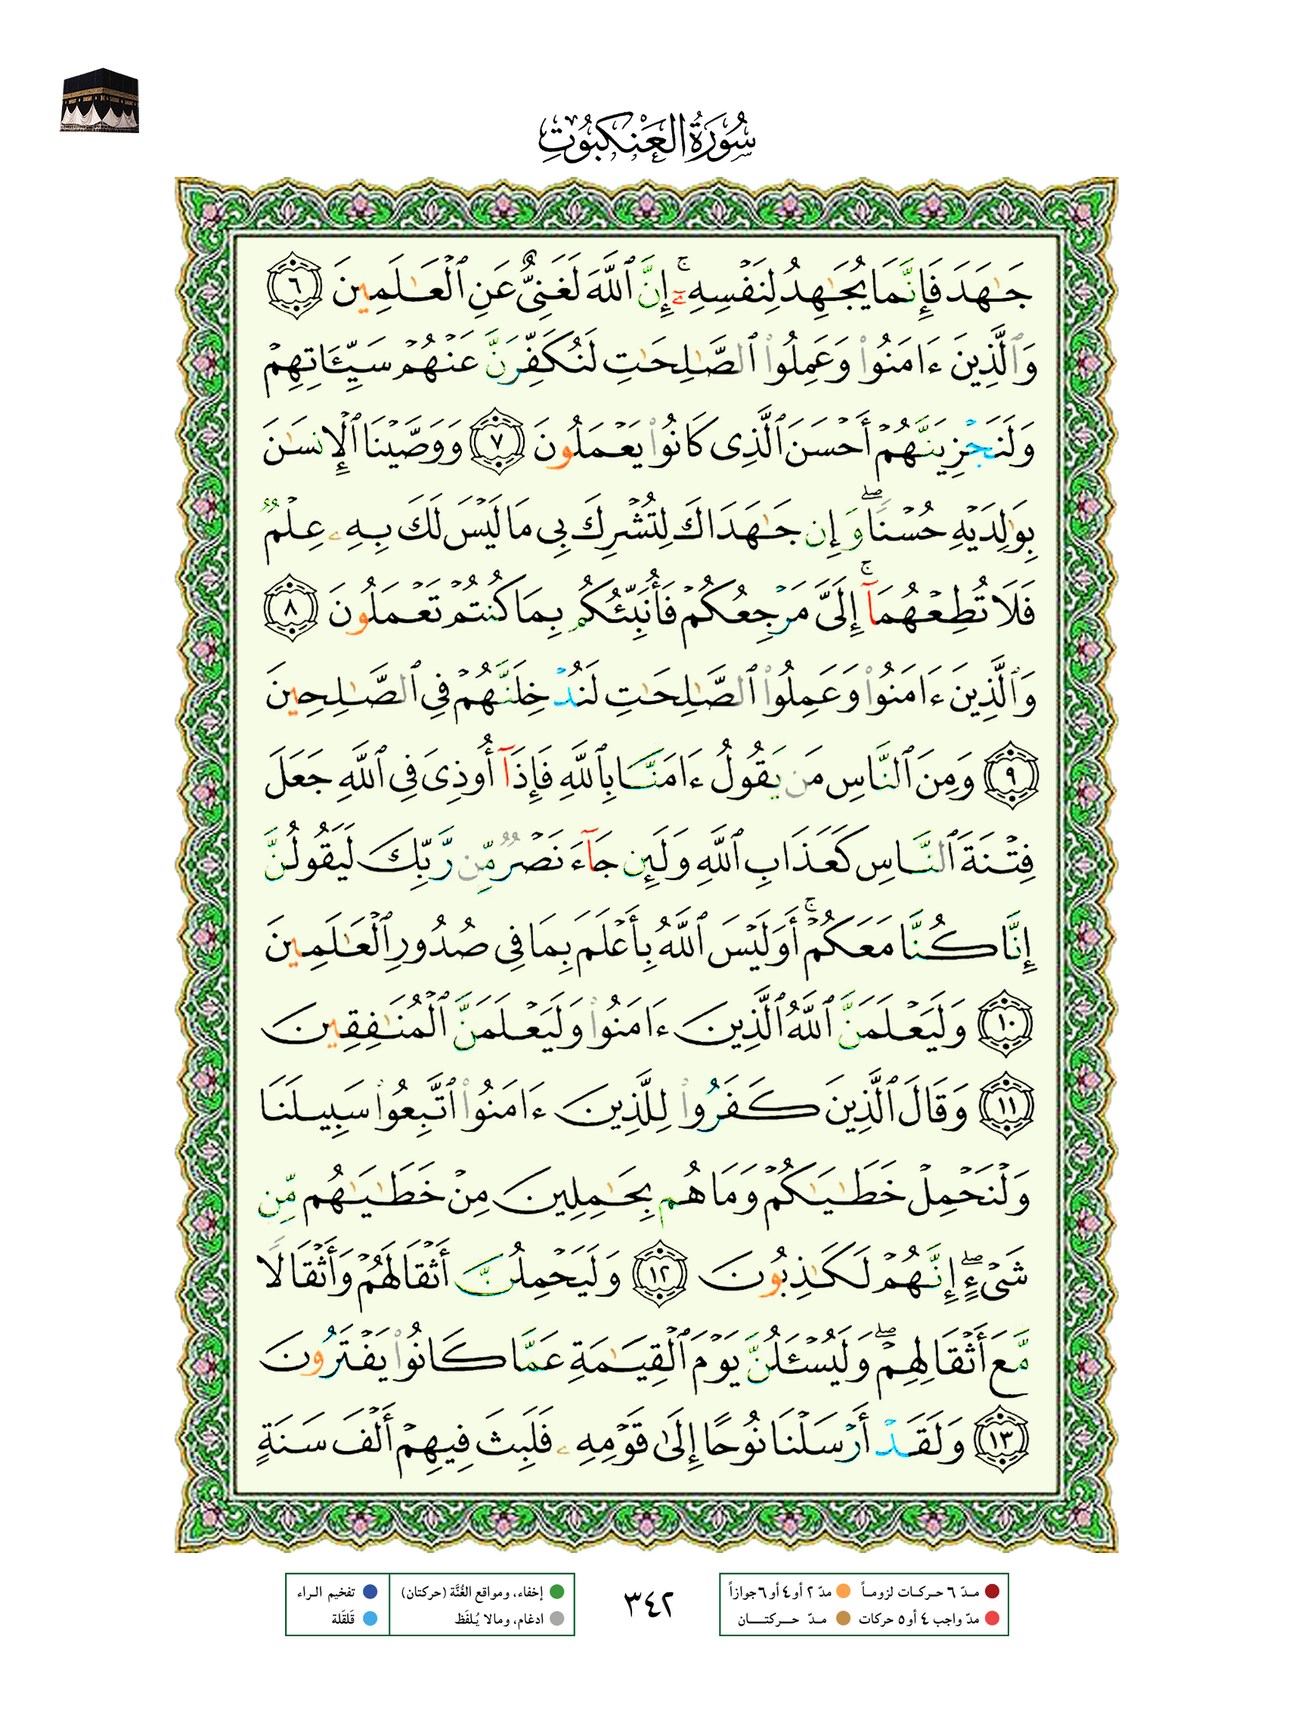 سُورَةُ الْعَنكَبُوتِ
جَـٰهَدَ فَإِنَّمَا يُجَـٰهِدُ لِنَفْسِهِۦٓ ۚ إِنَّ ٱللَّهَ لَغَنِىٌّ عَنِ ٱلْعَـٰلَمِينَ ٦
وَٱلَّذِينَ ءَامَنُوا۟ وَعَمِلُوا۟ ٱلصَّـٰلِحَـٰتِ لَنُكَفِّرَنَّ عَنْهُمْ سَيِّـَٔاتِهِمْ
وَلَنَجْزِيَنَّهُمْ أَحْسَنَ ٱلَّذِى كَانُوا۟ يَعْمَلُونَ ٧ وَوَصَّيْنَا ٱلْإِنسَـٰنَ
بِوَٰلِدَيْهِ حُسْنًا ۖ وَإِن جَـٰهَدَاكَ لِتُشْرِكَ بِى مَا لَيْسَ لَكَ بِهِۦ عِلْمٌ
فَلَا تُطِعْهُمَآ ۚ إِلَىَّ مَرْجِعُكُمْ فَأُنَبِّئُكُم بِمَا كُنتُمْ تَعْمَلُونَ ٨
وَٱلَّذِينَ ءَامَنُوا۟ وَعَمِلُوا۟ ٱلصَّـٰلِحَـٰتِ لَنُدْخِلَنَّهُمْ فِى ٱلصَّـٰلِحِينَ
٩ وَمِنَ ٱلنَّاسِ مَن يَقُولُ ءَامَنَّا بِٱللَّهِ فَإِذَآ أُوذِىَ فِى ٱللَّهِ جَعَلَ
فِتْنَةَ ٱلنَّاسِ كَعَذَابِ ٱللَّهِ وَلَئِن جَآءَ نَصْرٌ مِّن رَّبِّكَ لَيَقُولُنَّ
إِنَّا كُنَّا مَعَكُمْ ۚ أَوَلَيْسَ ٱللَّهُ بِأَعْلَمَ بِمَا فِى صُدُورِ ٱلْعَـٰلَمِينَ
١٠ وَلَيَعْلَمَنَّ ٱللَّهُ ٱلَّذِينَ ءَامَنُوا۟ وَلَيَعْلَمَنَّ ٱلْمُنَـٰفِقِينَ
١١ وَقَالَ ٱلَّذِينَ كَفَرُوا۟ لِلَّذِينَ ءَامَنُوا۟ ٱتَّبِعُوا۟ سَبِيلَنَا
وَلْنَحْمِلْ خَطَـٰيَـٰكُمْ وَمَا هُم بِحَـٰمِلِينَ مِنْ خَطَـٰيَـٰهُم مِّن
شَىْءٍ ۖ إِنَّهُمْ لَكَـٰذِبُونَ ١٢ وَلَيَحْمِلُنَّ أَثْقَالَهُمْ وَأَثْقَالًا
مَّعَ أَثْقَالِهِمْ ۖ وَلَيُسْـَٔلُنَّ يَوْمَ ٱلْقِيَـٰمَةِ عَمَّا كَانُوا۟ يَفْتَرُونَ
١٣ وَلَقَدْ أَرْسَلْنَا نُوحًا إِلَىٰ قَوْمِهِۦ فَلَبِثَ فِيهِمْ أَلْفَ سَنَةٍ
مدّ ٦ حركات لزوماً مدّ ٢ أو ٤ أو ٦ جوازاً
مدّ واجب ٤ أو ٥ حركات مدّ حركتان
٣٤٢
إخفاء، ومواقع الغُنَّة (حركتان) تفخيم الراء
ادغام، ومالا يُلفَظ قلقلة